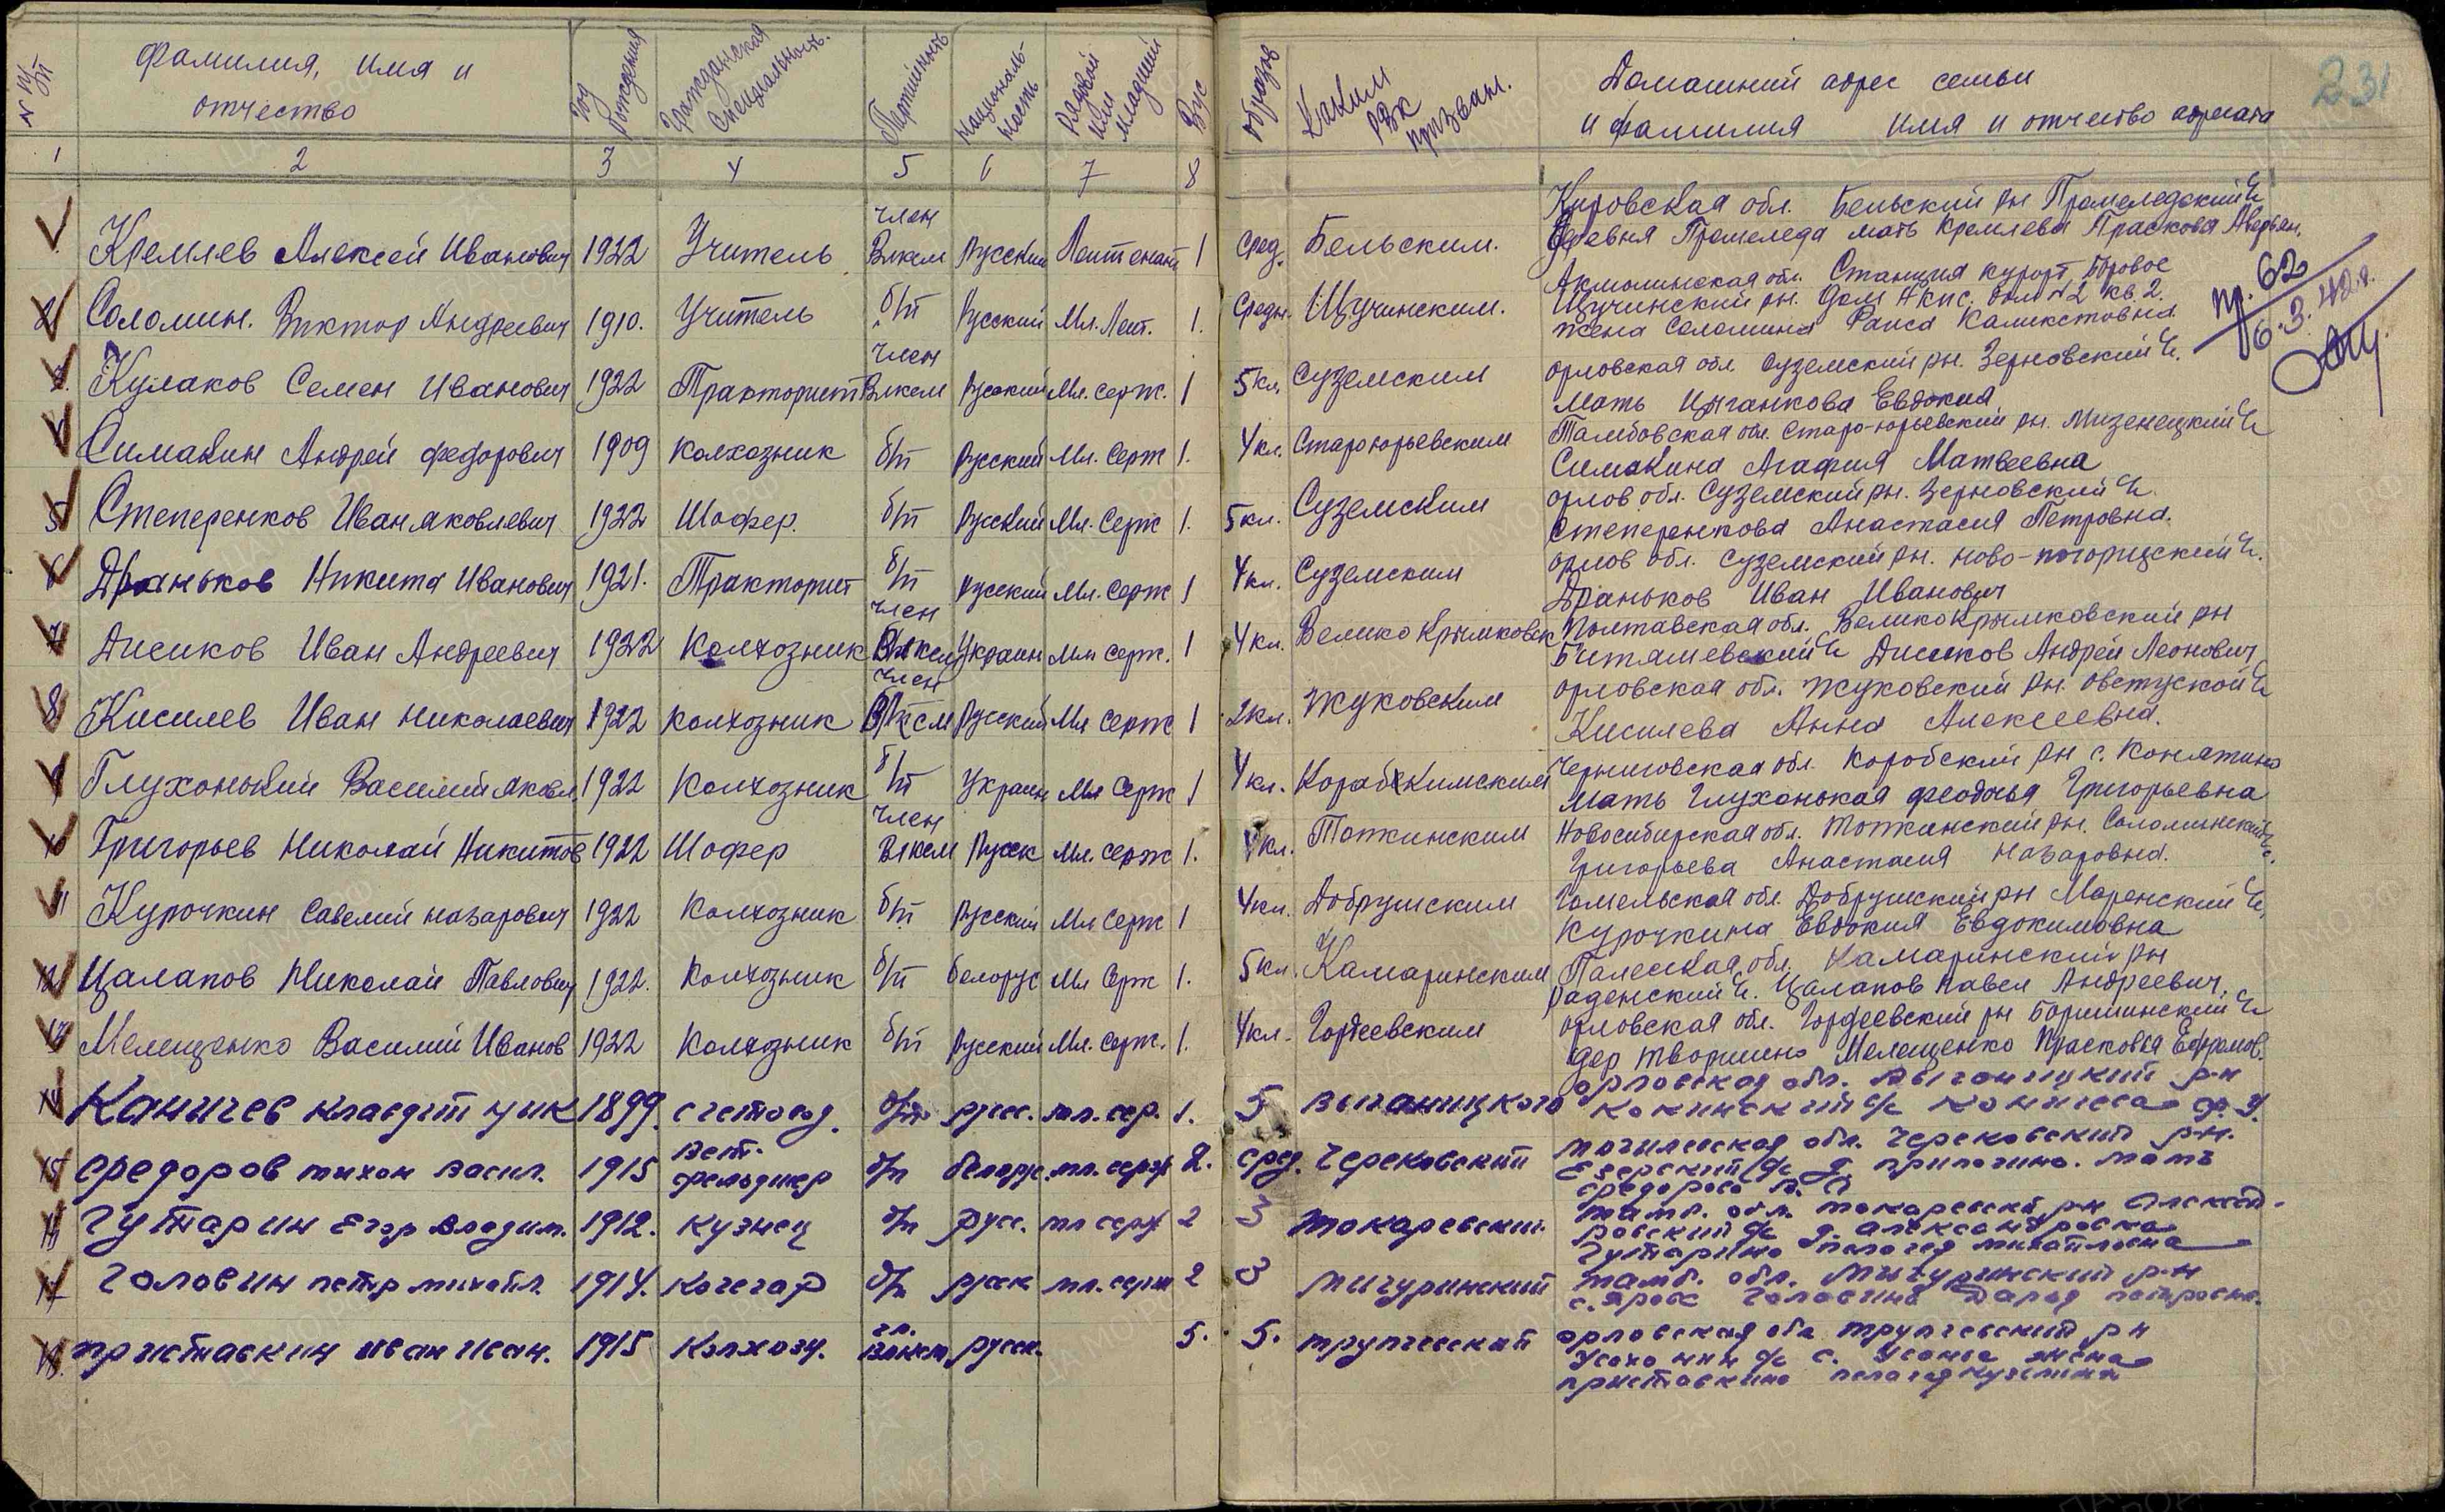 № п/п Фамилия, имя и отчество Год рождения Гражданская специальность. Партийность Национальность Рядовой или младший Вус Образов Каким РВК призван. Домашний адрес семьи и фамилия имя и отчество адресата
231
1 2 3 4 5 6 7 8
Кремлев Алексей Иванович 1922 Учитель член Влксм Русский Лейтенант 1 сред. Бельским. Кировская обл. Бельский рн
деревня Промеледа мать Кремлева Праскова Аверьян.
2 Соломин. Виктор Андреевич 1910. Учитель б/п Русский Мл. Лейт. 1. Средн. Щучинским. Акмолинская обл. Станция курорт Боровое
Щучинский рн. Дом Акпс. дом №2 кв. 2.
жена Соломина Раиса Каликстовна
пр. 62
6.3.42г.
Кулаков Семен Иванович 1922 Тракторист член Влксм Русский Мл. серж. 1 5кл. Суземским орловская обл. Суземский рн. Зерновский
мать Цыганкова Евдокия
Симакин Андрей федорович 1909 колхозник б/п Русский Мл. Серж 1. 4кл. Староюрьевским Тамбовская обл. Старо-юрьевский рн. Мизенецкий
Симакина Агафия Матвеевна
5 Степеренков Иван яковлевич 1922 Шофер. б/п Русский Мл. Серж 1. 5кл. Суземским орлов. обл. Суземский рн. Зерновский
Степеренкова Анастасия Петровна.
6 Драньков Никита Иванович 1921. Тракторит б/п Русский Мл. Серж 1 4кл. Суземским орлов обл. Суземский рн. ново-погорицский
Драньков Иван Иванович
7 Дисиков Иван Андреевич 1922 Колхозник член Влксм Украин Мл серж. 1 4кл. Велико Крымковск Полтавская обл. Великокрымковский рн
Дисиков Андрей Леонович
8 Кисилев Иван николаевич 1922 колхозник член Влксм Русский Мл Серж 1 2кл. Жуковским орловская обл. Жуковский рн. овстуской
Кисилева Анна Алексеевна.
9 Глухонький Василий яковл. 1922 Колхозник б/п Украин Мл Серж 1 4кл. Черниговская обл. Коробский рн с. Конятино
мать Глухонькая феодосья Григорьевна
10 Григорьев Николай Никитов 1922 Шофер член Влксм Русск Мл. серж 1. 4кл. Топкинским Новосибирская обл. Топкинский рн. Соломинский
Григорьева Анастасия назаровна.
11 Курочкин Савелий назарович 1922 Колхозник б/п. Русский Мл Серж 1 4кл. Добрушским Гомельская обл. Добрушский рн Маренский
Курочкина Евдокия Евдокимовна
12 Цалапов Николай Павлович 1922. Колхозник б/п белорус Мл Серж 1. 5кл. Камаринским Палеская обл. Камаринский рн
раденский Цалапов павел Андреевич.
13 Мелещенко Василий Иванов 1922 Колхозник б/п Русский Мл. Серж. 1. 4кл. Гордеевским орловская обл. Гордеевский рн
дер творишино Мелещенко Прасковья Ефремов.
14 Каничев 1899. счетовод. б/п русс. мл. сер. 1. 5 выганицкого орловская обл. Выганицкий р-н
кокинский с/с
15 Федоров тихон васил. 1915 вет. фельдшер б/п белорус. мл. серж 2. сред. Чериковский могилевская обл. Чериковский р-н.
Езерский с/с д. мать
Федорова
16 Гутарин Егор Владим. 1912. кузнец б/п русс. мл серж 2 3 токаревский. тамб. обл. токаревский рн Александ-
ровский с/с д. александровка
Гутарина пелагея михайловна
17 Головин петр михайл. 1914. Кочегар б/п русск мл. серж 2 3 мичуринский тамб. обл. Мичуринский р-н
с. Ярок Головина Дарья петровна.
18. приставкин иван иван. 1915 Колхозн. чл. влксм русск. 5. 5. трупчевский орловская обл трупчевский рн
с/с с. жена
приставкина пелагея кузминич